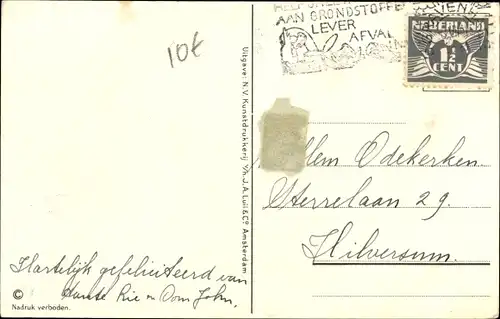 10€
AAN GRONDSTOFFE
LEVER
AFVAL
NEDERLAND
1½
CENT
Uitgave: N.V. Kunstdrukkerij v/h. J.A. Luii & Co Amsterdam
Willem Odekerken
Sterrelaan 29.
Hilversum.
Hartelijk gefeliciteerd van
tante Rie en Oom John.
©
Nadruk verboden.